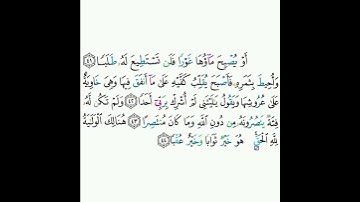 أَوْ يُصْبِحَ مَآؤُهَا غَوْرًا فَلَن تَسْتَطِيعَ لَهُ طَلَبًا ٤١
وَأُحِيطَ بِثَمَرِهِ فَأَصْبَحَ يُقَلِّبُ كَفَّيْهِ عَلَىٰ مَآ أَنفَقَ فِيهَا وَهِيَ خَاوِيَةٌ
عَلَىٰ عُرُوشِهَا وَيَقُولُ يَٰلَيْتَنِي لَمْ أُشْرِكْ بِرَبِّيٓ أَحَدًا ٤٢ وَلَمْ تَكُن لَّهُۥ
فِئَةٌ يَنصُرُونَهُۥ مِن دُونِ ٱللَّهِ وَمَا كَانَ مُنتَصِرًا ٤٣ هُنَالِكَ ٱلْوَلَٰيَةُ
لِلَّهِ ٱلْحَقِّ هُوَ خَيْرٌ ثَوَابًا وَخَيْرٌ عُقْبًا ٤٤